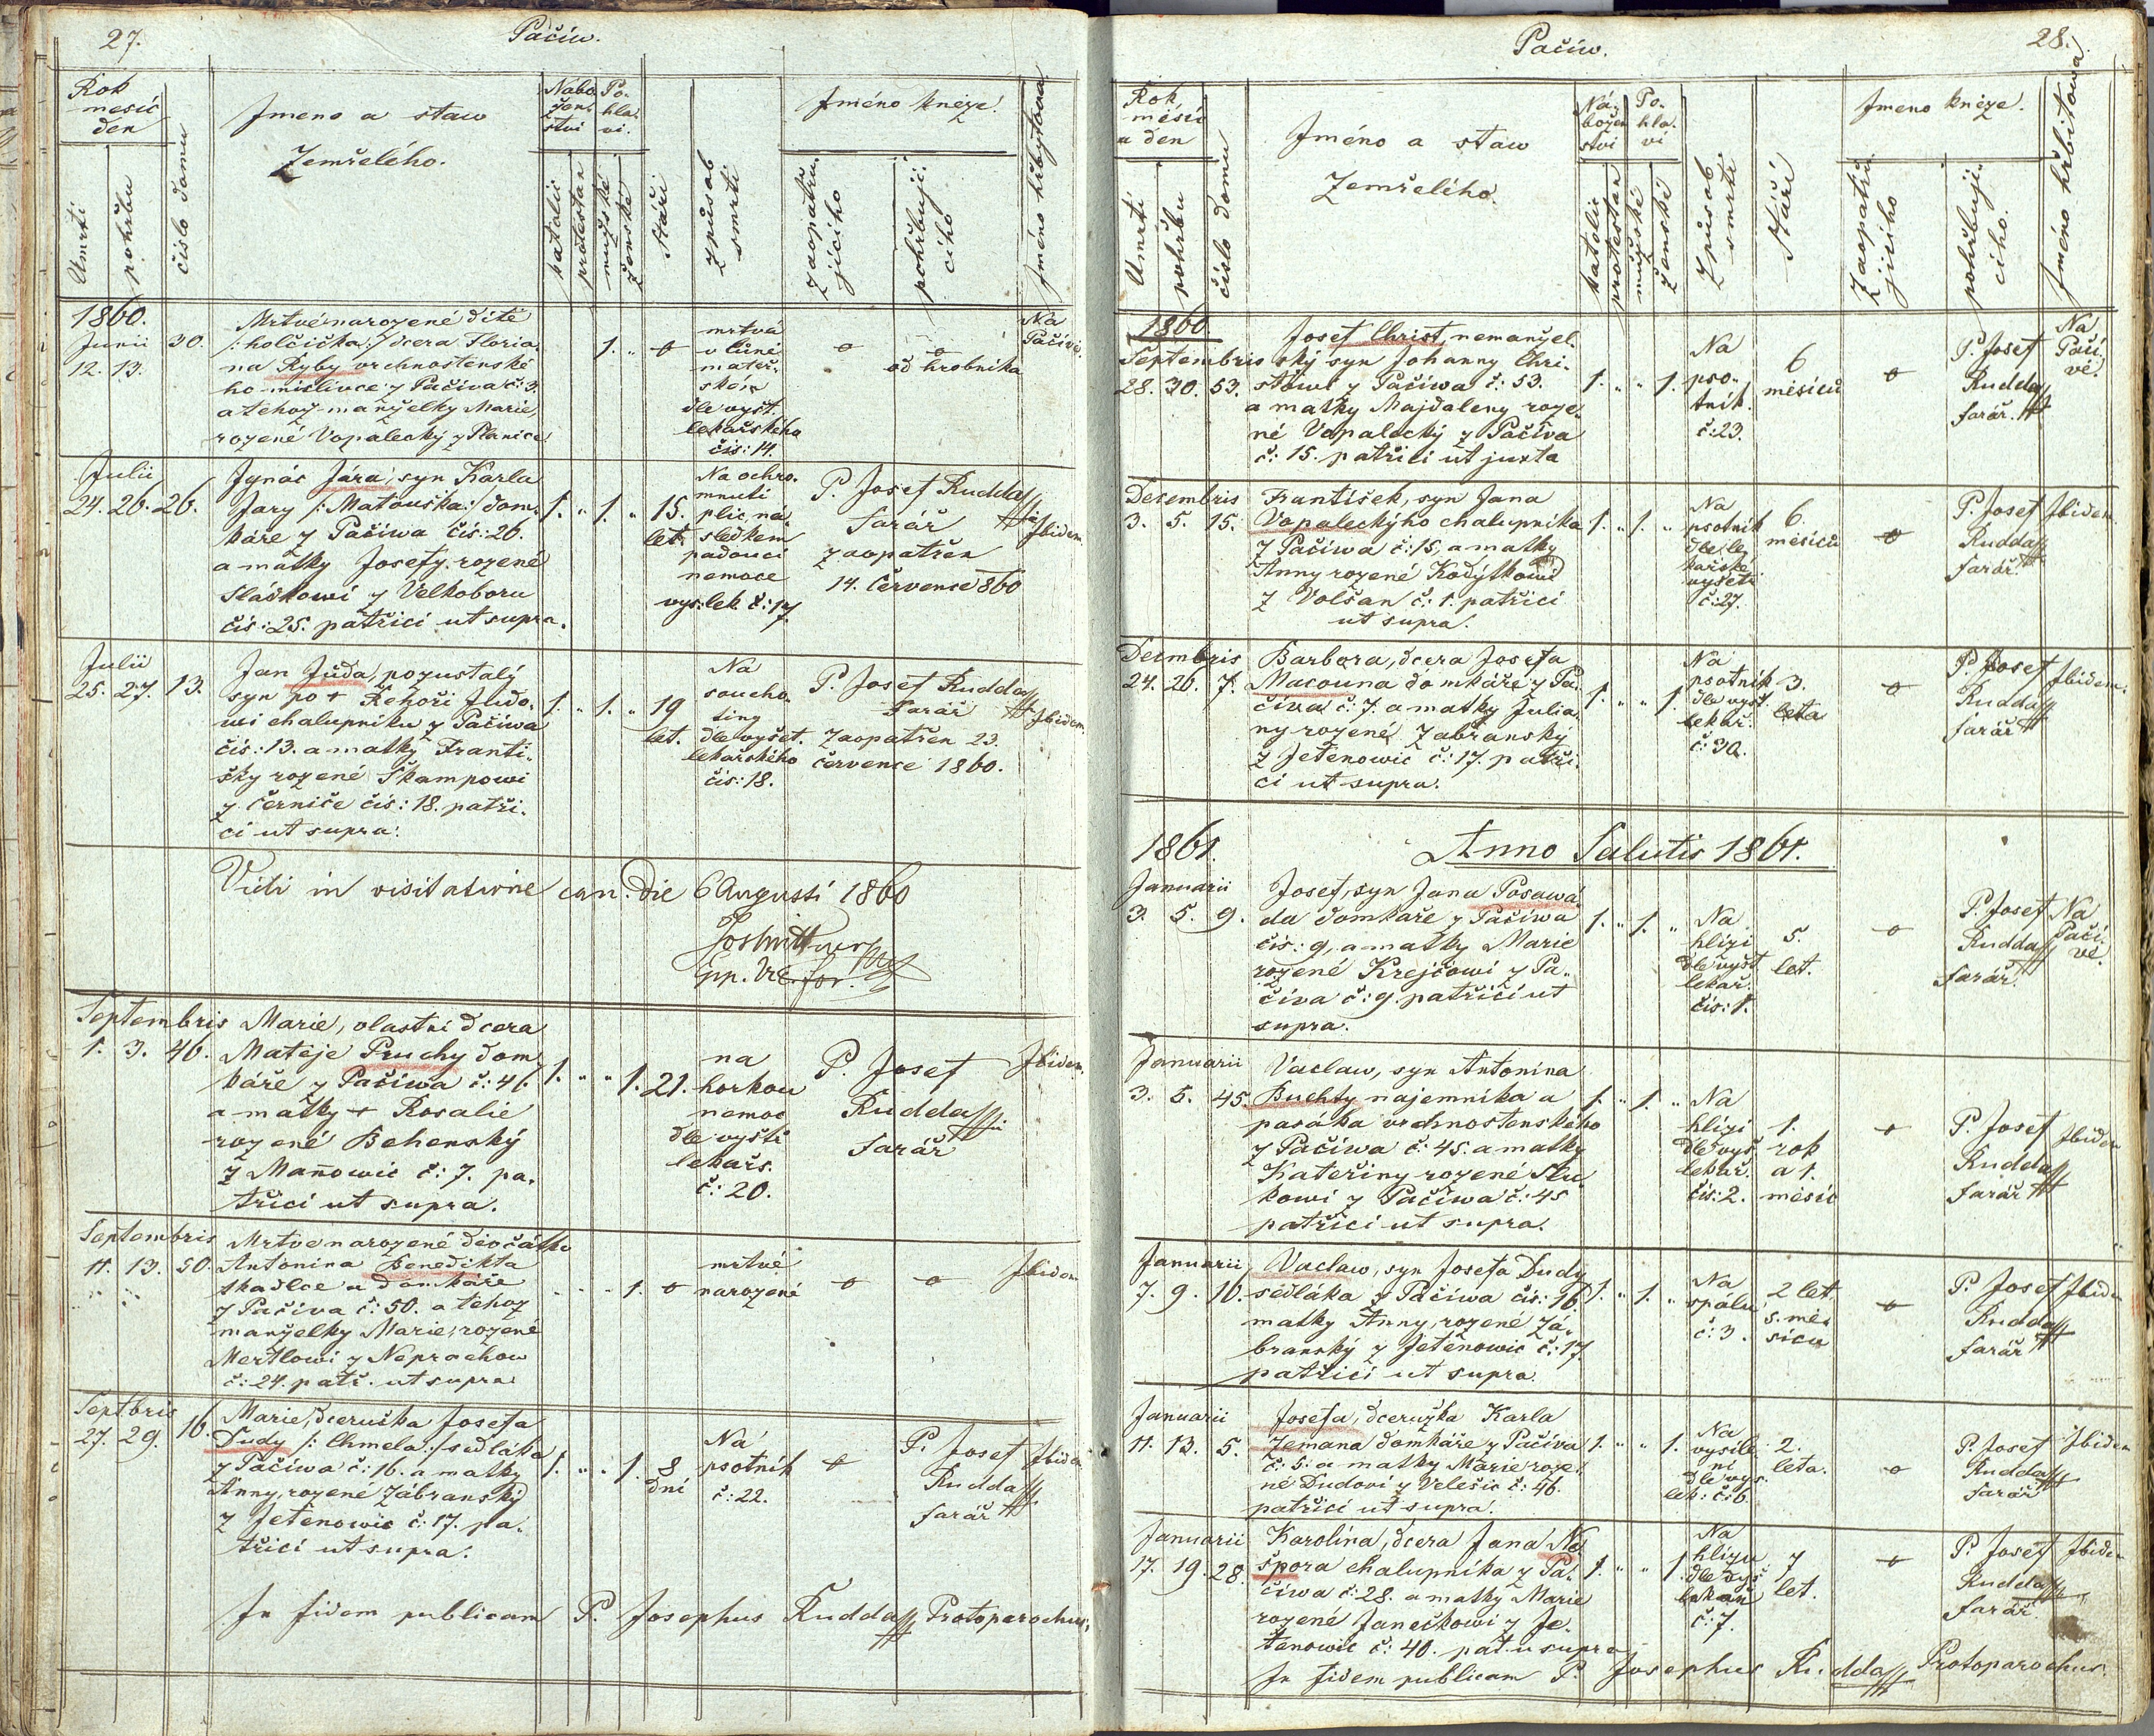 27.
Pačíw.
Rok
mesíc
den
Jmeno a staw
Zemřelého.
Nabo
žen
stvi
Po-
hla-
vi.
Jméno kněze.
Umrti
pohřbu
číslo domu
katolic
protestan
mužské
ženské
Stáři
způsob
smrti
zaopatřu
jícího
pohřbují-
cího
Jméno hřbytowa
1860.
Junii 30.
12. 13.
Mrtvé narozené dítě
/: holčička :/ dcera Floria-
na Ryby vrchnostenské
ho mislivce z Pačiva č: 3.
a tehoz manželky Marie,
rozené Vopalecký z Planice
1. "
mrtvá
v luné
mateř-
ské
dle vyšt.
lekařského
čís: 14.
od hrobníka
Na
Pačívě.
Julii
24. 26. 26.
Jgnác Jára, syn Karla
Jary /: Matouška :/ dom-
káře z Pačiwa čís: 26.
a matky Josefy, rozené
Sláškowi z Velkoboru
čís: 25. patřici ut supra.
1. " 1. " 15.
let.
Na ochro-
mnuti
plic na-
sledkem
padouci
nemoce
vys: lek. č: 17.
P. Josef Rudda
Farář
zaopatřen
14. Července 860
Jbidem.
Julii
25. 27. 13.
Jan Juda, pozustalý
syn po + Řehoři Judo-
wi chalupniku z Pačiwa
čís: 13. a matky Franti-
šky rozené Škampowi
z Černiče čís: 18. patři-
ci ut supra.
1. " 1. " 19
let.
Na
soucho-
tiny
dle vyšet.
lekařského
čís: 18.
P. Josef Rudda
Farář
Zaopatřen 23.
července 1860.
Jbidem.
Vidi in visitatione can. die 6 Augusti 1860
Septembris
1. 3. 46.
Marie, vlastní dcera
Mateje Pruchy dom
káře z Pačíwa č: 46
a matky + Rosalie
rozené Behenský
z Mañowic č: 7. pa-
třici ut supra.
1. " " 1. 21.
na
horkou
nemoc
dle vyšti
lekařs.
č: 20.
P. Josef
Rudda
Farář
Jbidem.
Septembris
11. 13. 50.
Mrtve narozené děvčátko
Antonina Benedikta
tkadlce a domkáře
z Pačiva č: 50. a tehoz
manželky Marie, rozené
Mertlowi z Neprochow
č: 24. patř. ut supra
1.
mrtvé
narozené
Jbidem
Septbris
27. 29. 16.
Marie, dceruška Josefa
Dudy /: Chmela :/ sedláka
z Pačiwa č: 16. a matky
Anny, rozené Zábranský
z Jetěnowic č: 17. pa-
třici ut supra.
1. " " 1. 8
dní
Na
psotník
č: 22.
P. Josef
Rudda
Farář
Jbidem
In fidem publicam P. Josephus Rudda Protoparochus,
28.
Pačíw.
Rok
měsíc
a den
Jméno a staw
Zemřelého.
Ná-
božen
stvi
Po-
hla-
vi
Jmeno kněze.
Umrti
pohřbu
číslo domu
katolic
protestan
mužské
ženské
Způsob
smrti
Stáří
Zaopatřu
jícího
pohřbují-
cího.
Jméno hřbitowa
1860
Septembris
28. 30. 53.
Josef Christ, nemanžel-
ský syn Johanny Chri-
stowi z Pačiwa č: 53.
a matky Majdaleny roze-
né Vopalecký z Pačiva
č: 15. patřici ut juxta
1. " " 1.
Na
pso-
tník.
č: 23.
6
měsíců
P. Josef
Rudda
farář.
Na
Pačí
vě.
Decembris
3. 5. 15.
František, syn Jana
Vopaleckýho chalupnika
z Pačiwa č: 15, a matky
Anny rozené Kodýtkowi
z Volšan č: 1. patřici
ut supra.
1. " 1. "
Na
psotník
dle le-
kařské
vyšeti
č: 27.
6.
měsíců
P. Josef
Rudda
Farář.
Jbidem.
Decmbris
24. 26. 7.
Barbora, dcera Josefa
Macouna domkáře z Pa-
čiva č: 7. a matky Julia-
ny rozené Zabranský
z Jetěnowic č: 17. patři-
ci ut supra.
1. " " 1.
Na
psotník
dle vyšt
lekař.
č: 30.
3.
leta
P. Josef
Rudda
farář
Jbidem.
1861.
Anno Salutis 1861.
Januarii
3. 5. 9.
Josef, syn Jana Posawá
da domkáře z Pačiwa
čís: 9, a matky Marie
rozené Krejčowi z Pa-
čiva č: 9. patřici ut
supra.
1. " 1. "
Na
hlízi
dle vyšt
lekař.
čis: 1.
5.
let.
P. Josef
Rudda
Farář.
Na
Pačí-
vě.
Januarii
3. 5. 45.
Vaclaw, syn Antonina
Buchty najemníka a
pasáka vrchnostenského
z Pačiwa č: 45. a matky
Kateřiny rozené Slu-
kowi z Pačiwa č: 45
patřici ut supra.
1. " 1. "
Na
hlízi
dle vyš.
lekař.
čís: 2.
1.
rok
a 1.
měsíc
P. Josef
Rudda
Farář
Jbidem
Januarii
7. 9. 16.
Vaclaw, syn Josefa Dudy
sedláka z Pačiwa čís: 16.
matky Anny, rozené Zá-
branský z Jetěnowic č: 17
patřici ut supra.
1. " 1. "
Na
spálu
č: 3.
2 let
5. mě-
síců
P. Josef
Rudda
farář
Jbidem
Januarii
11. 13. 5.
Josefa, dceruzka Karla
Zemana domkáře z Pačíva
č: 5. a matky Marie roze-
né Dudovi z Velešic č: 46.
patřici ut supra.
1. " " 1.
Na
vysíle-
ni
dle vys.
lek: č: 6.
2.
leta.
P. Josef
Rudda
farář
Jbidem
Januarii
17. 19. 28.
Karolína, dcera Jana Ne
špora chalupníka z Pa-
čiwa č: 28. a matky Marie
rozené Janečkowi z Je-
těnowic č: 40. pat. u supra
1. " " 1.
Na
hlízu
dle vyš
lekař
č: 7.
7
let.
P. Josef
Rudda
Farář.
Jbidem
In fidem publicam P. Josephus Rudda Protoparochus.